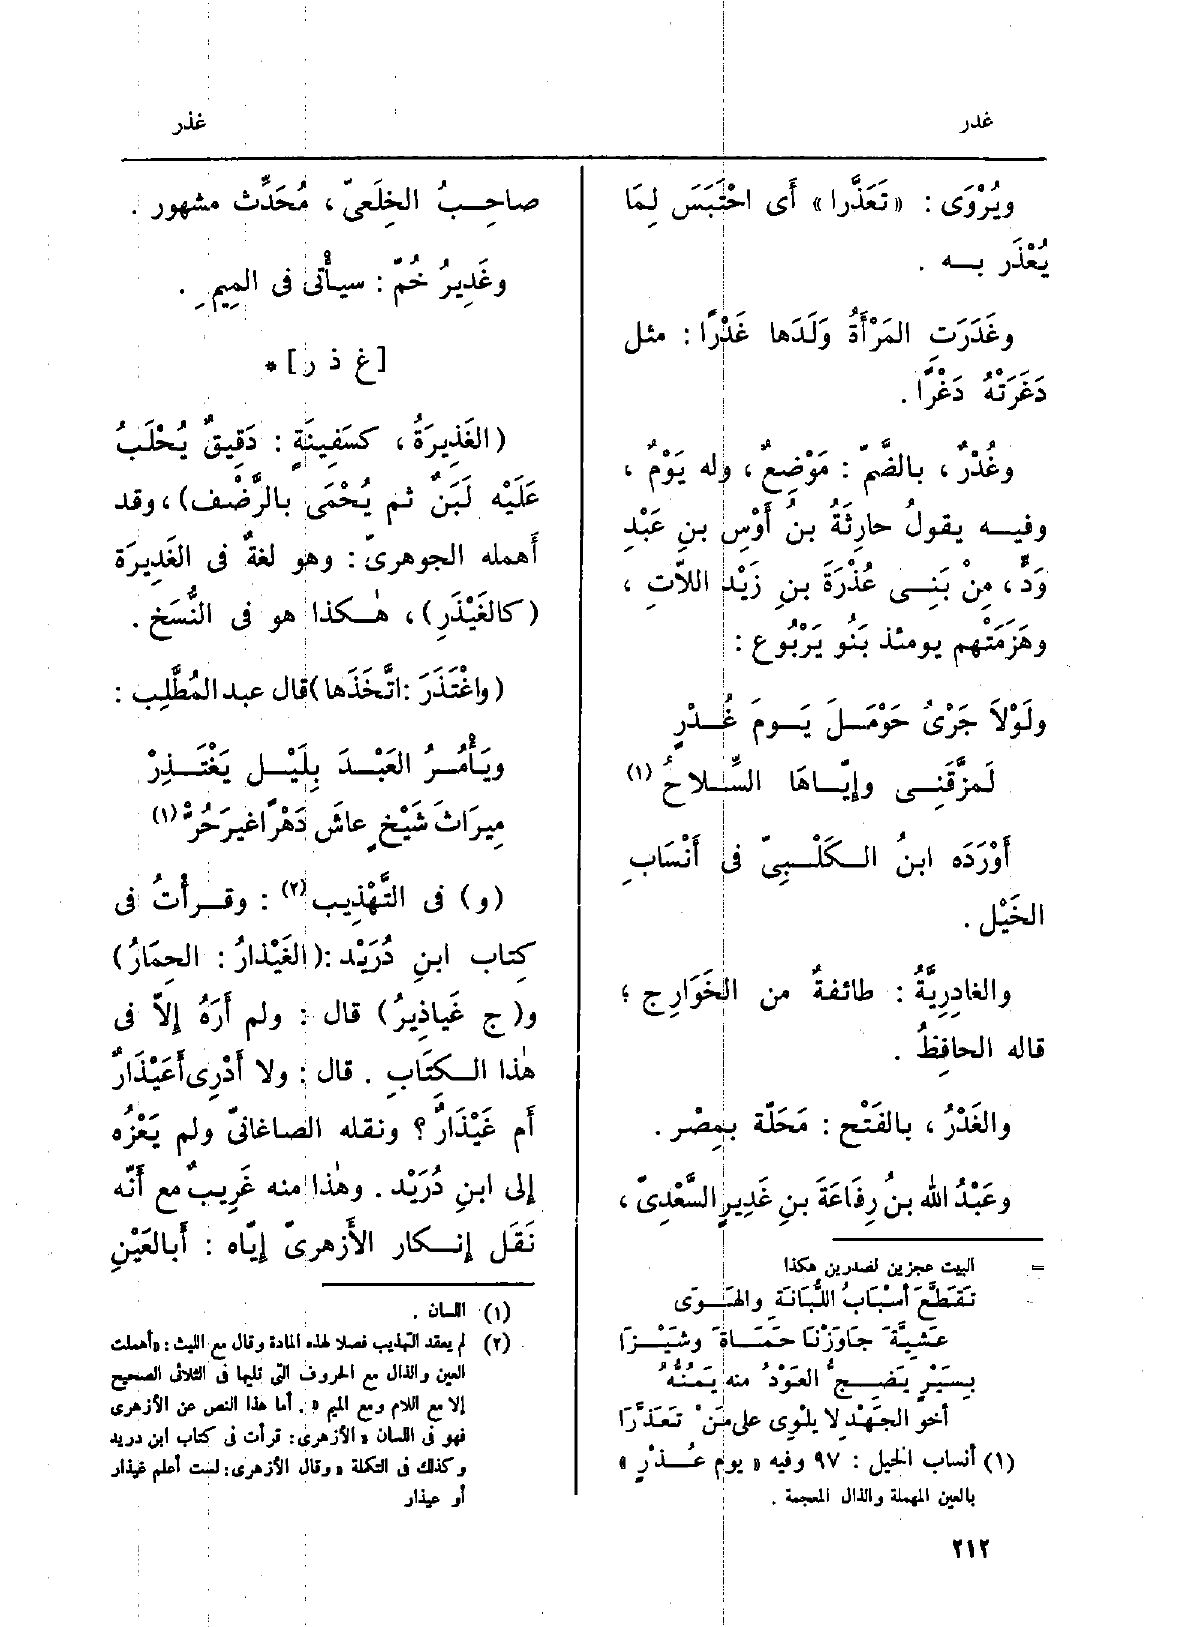 غدر
غذر
ويُرْوَى : « تَعَذَّرا » أَى احْتَبَسَ لِمَا
يُعْذَر بــه .
وغَدَرَتِ المَرْأَةُ وَلَدَها غَدْرًا : مثل
دَغَرَتْهُ دَغْرًا .
وغُدْرٌ ، بالضَّمّ : مَوْضِعٌ ، وله يَوْمٌ ،
وفيــه يقولُ حارِثَةُ بنُ أَوْسِ بنِ عَبْدِ
وَدٍّ ، مِنْ بَنِــى عُذْرَةَ بنِ زَيْدِ اللاّتِ ،
وهَزَمَتْهم يومئذ بَنُو يَرْبُوع :
ولَوْلاَ جَرْىُ حَوْمَــلَ يَــومَ غُــدْرٍ
لَمزَّقَنِــى وإِيّــاهَا السِّــلاحُ (١)
أَوْرَدَه ابنُ الــكَلْــبِىّ فى أَنْسَابِ
الخَيْل .
والغادِرِيَّةُ : طائفةٌ من الخَوَارِج ؛
قاله الحافِظُ .
والغَدْرُ ، بالفَتْح : مَحَلّة بمِصْر .
وعَبْدُ الله بنُ رِفَاعَةَ بنِ غَدِيرٍ السَّعْدِىّ ،
= البيت عجزين لصدرين هكذا
تَقَطَّعَ أسْبَابُ اللُّبَانَةِ والهَــوَى
عَشِيَّةَ جَاوَزْنَا حَمَــاةَ وشَيْــزَرَا
بِسَيْرٍ يَضِــجُّ العَوْدُ منه يَمُنُّهُ
أخو الجَهْدِ لا يلْوِى على مَنْ تَعَذَّرَا
(١) أنساب الخيل : ٩٧ وفيه « يوم عُــذْرٍ »
بالعين المهملة والذال المعجمة .
صاحِــبُ الخِلَعىّ ، مُحَدِّث مشهور .
وغَدِيرُ خُمٍّ : سيأْتى فى المِيمِ .
[ غ ذ ر ] *
( الغَذِيرَةُ ، كسَفِينَةٍ : دَقِيقٌ يُحْلَبُ
عَلَيْه لَبَنٌ ثم يُحْمَى بالرَّضْف ) ، وقد
أَهمله الجوهرىّ : وهو لغةٌ فى الغَدِيرَة
( كالغَيْذَرِ ) ، هٰــكذا هو فى النُّسَخ .
( واغْتَذَرَ : اتَّخَذَها ) قال عبد المُطَّلِب :
ويَأْمُــرُ العَبْــدَ بِلَيْــلٍ يَغْتَــذِرْ
مِيرَاثَ شَيْخٍ عاشَ دَهْرًا غيرَ حُرّْ (١)
( و ) فى التَّهْذِيب (٢) : وقــرأْتُ فى
كِتاب ابنِ دُرَيْد : ( الغَيْذارُ : الحِمَارُ )
و( ج غَياذِيرُ ) قال : ولم أَرَهُ إِلاّ فى
هٰذا الــكِتَابِ . قال : ولا أَدْرِى أَعَيْذَارٌ
أَم غَيْذَارٌ ؟ ونقله الصاغانىّ ولم يَعْزُه
إلى ابنِ دُرَيْد . وهٰذا منه غَرِيبٌ مع أَنّه
نَقَل إِنــكار الأَزهرىّ إِيّاه : أَبالعَيْنِ
(١) اللسان .
(٢) لم يعقد التهذيب فصلا لهذه المادة وقال مع الليث : «أهملت
العين والذال مع الحروف التى تليها فى الثلاثى الصحيح
إلا مع اللام ومع الميم » . أما هذا النص عن الأزهرى
فهو فى اللسان « الأزهرى : قرأت فى كتاب ابن دريد
وكذلك فى التكلة « وقال الأزهرى : لست أعلم غيذار
أو عيذار
٢١٢